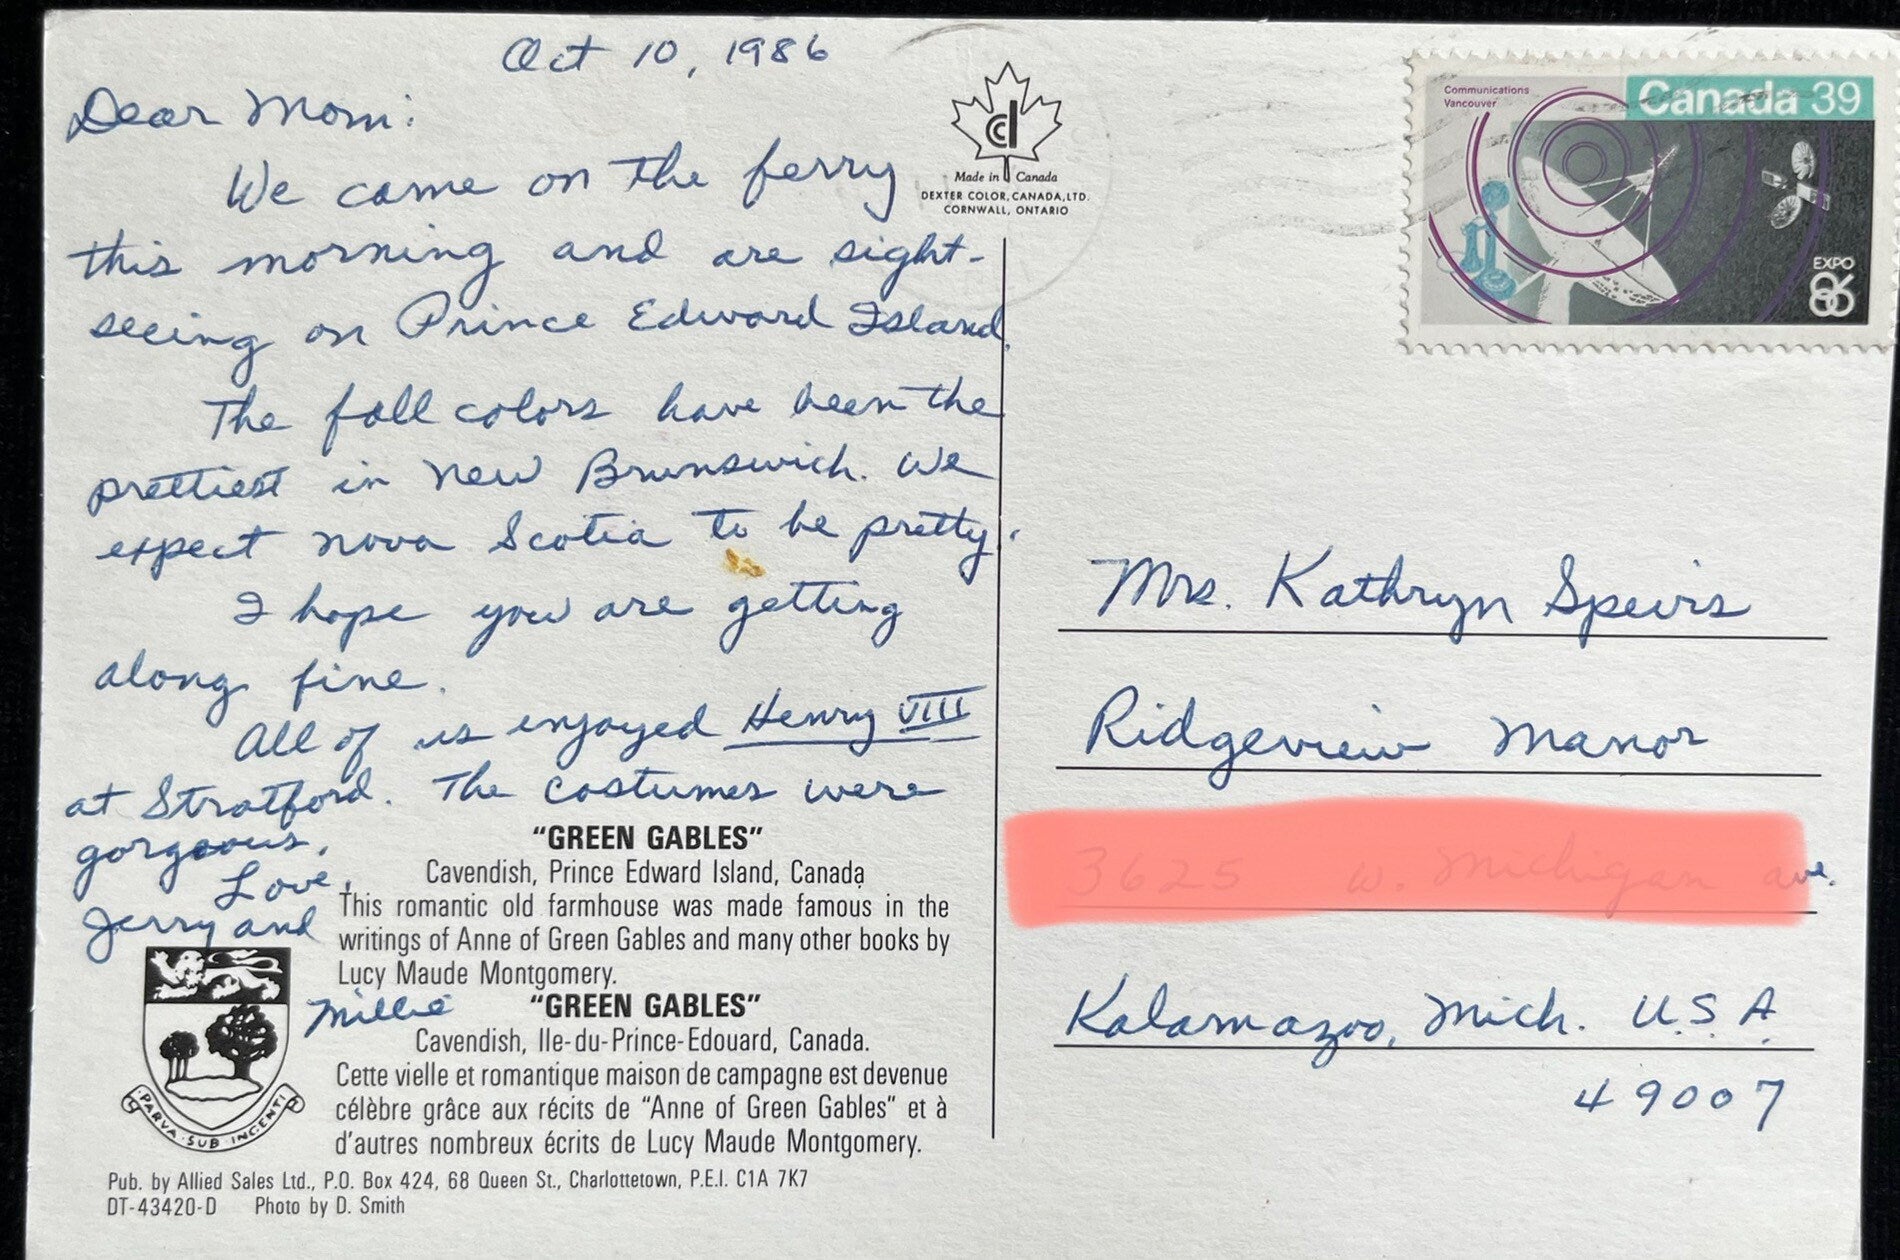 Oct 10, 1986
Dear Mom:
We came on the ferry
this morning and are sight-
seeing on Prince Edward Island.
The fall colors have been the
prettiest in New Brunswick. We
expect Nova Scotia to be pretty.
I hope you are getting
along fine.
All of us enjoyed Henry VIII
at Stratford. The costumes were
gorgeous.
Love,
Jerry and
Millie
"GREEN GABLES"
Cavendish, Prince Edward Island, Canada
This romantic old farmhouse was made famous in the
writings of Anne of Green Gables and many other books by
Lucy Maude Montgomery.
"GREEN GABLES"
Cavendish, Ile-du-Prince-Edouard, Canada.
Cette vielle et romantique maison de campagne est devenue
célèbre grâce aux récits de "Anne of Green Gables" et à
d'autres nombreux écrits de Lucy Maude Montgomery.
PARVA SUB INGENTI
Pub. by Allied Sales Ltd., P.O. Box 424, 68 Queen St., Charlottetown, P.E.I. C1A 7K7
DT-43420-D Photo by D. Smith
Made in Canada
DEXTER COLOR, CANADA, LTD.
CORNWALL, ONTARIO
Communications
Vancouver
Canada 39
EXPO
86
Mrs. Kathryn Speirs
Ridgeview Manor
ave.
Kalamazoo, Mich. U.S.A.
49007